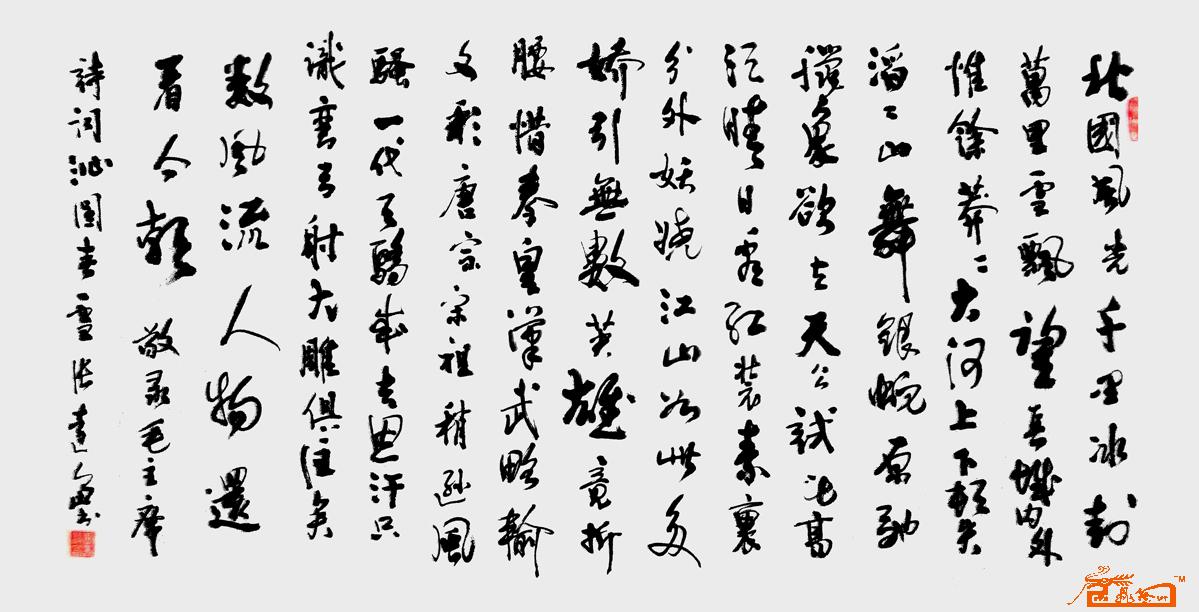 北國風光千里冰封
萬里雪飄望長城内外
惟餘莽〻大河上下頓失
滔〻山舞銀蛇原馳
蠟象欲与天公試比高
須晴日看紅裝素裹
分外妖嬈江山如此多
嬌引無數英雄竟折
腰惜秦皇漢武略輸
文彩唐宗宋祖稍遜風
騷一代天驕成吉思汗只
識彎弓射大雕俱往矣
數風流人物還
看今朝 敬录毛主席
詩詞沁園春雪张书